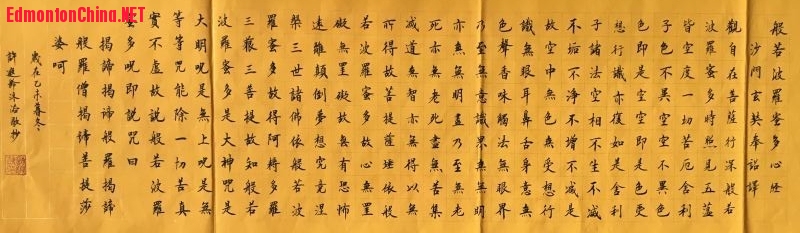 EdmontonChina.NET
般若波羅蜜多心經
沙門玄奘奉詔譯
觀自在菩薩行深般若
波羅蜜多時照見五蘊
皆空度一切苦厄舍利
子色不異空空不異色
色即是空空即是色受
想行識亦復如是舍利
子諸法空相不生不滅
不垢不淨不增不減是
故空中無色無受想行
識無眼耳鼻舌身意無
色聲香味觸法無眼界
乃至無意識界無無明
亦無無明盡乃至無老
死亦無老死盡無苦集
滅道無智亦無得以無
所得故菩提薩埵依般
若波羅蜜多故心無罣
礙無罣礙故無有恐怖
遠離顛倒夢想究竟涅
槃三世諸佛依般若波
羅蜜多故得阿耨多羅
三藐三菩提故知般若
波羅蜜多是大神咒是
大明咒是無上咒是無
等等咒能除一切苦真
實不虛故說般若波羅
蜜多呪即說咒曰
揭諦揭諦般羅揭諦
般羅僧揭諦菩提莎
婆呵
歲在乙未暮冬
許 沐浴敬抄